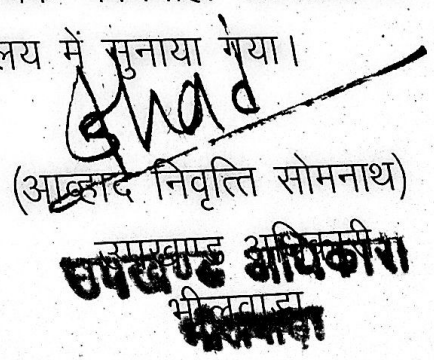 लय में सुनाया गया।
(आव्हाद निवृत्ति सोमनाथ)
उपखण्ड अधिकारी
उपखण्ड अधिकारी
भीलवाड़ा